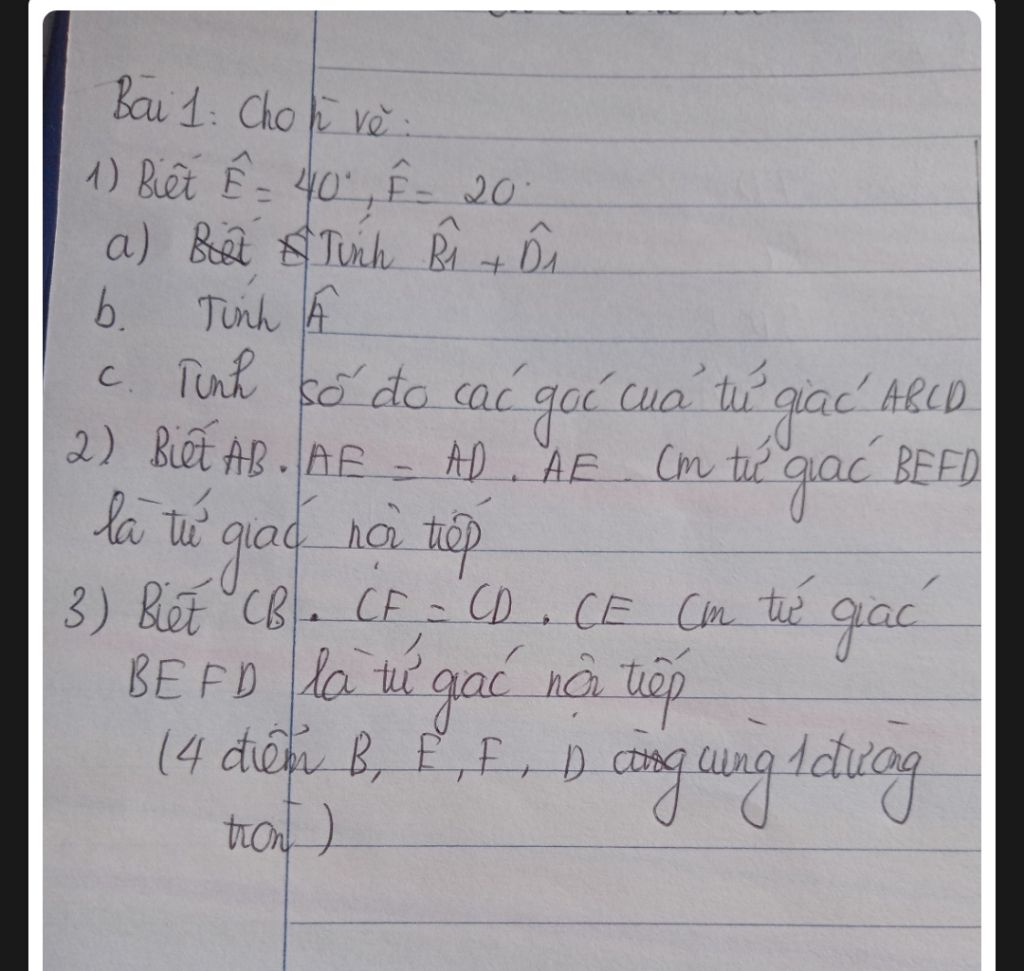 Bài 1: Cho h vẽ:
1) Biết Ê = 40°, F̂ = 20°
a) Biết Tính B̂1 + D̂1
b. Tính Â
c. Tính số đo các góc của tứ giác ABCD
2) Biết AB. AE = AD. AE. Cm tứ giác BEFD
là tứ giác nội tiếp
3) Biết CB. CF = CD. CE Cm tứ giác
BEFD là tứ giác nội tiếp
(4 điểm B, E, F, D cùng cùng 1 đường
tròn)